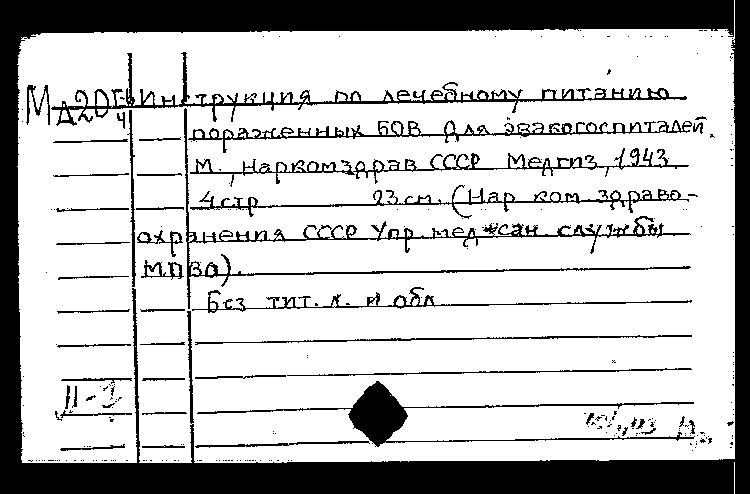 Инструкция по лечебному питанию
пораженных БОВ для эвакогоспиталей.
М., Наркомздрав СССР Медгиз, 1943.
4 стр 23 см. (Нар ком здраво-
охранения СССР Упр. мед-сан. службы
МПВО).
Без тит. л. и обл